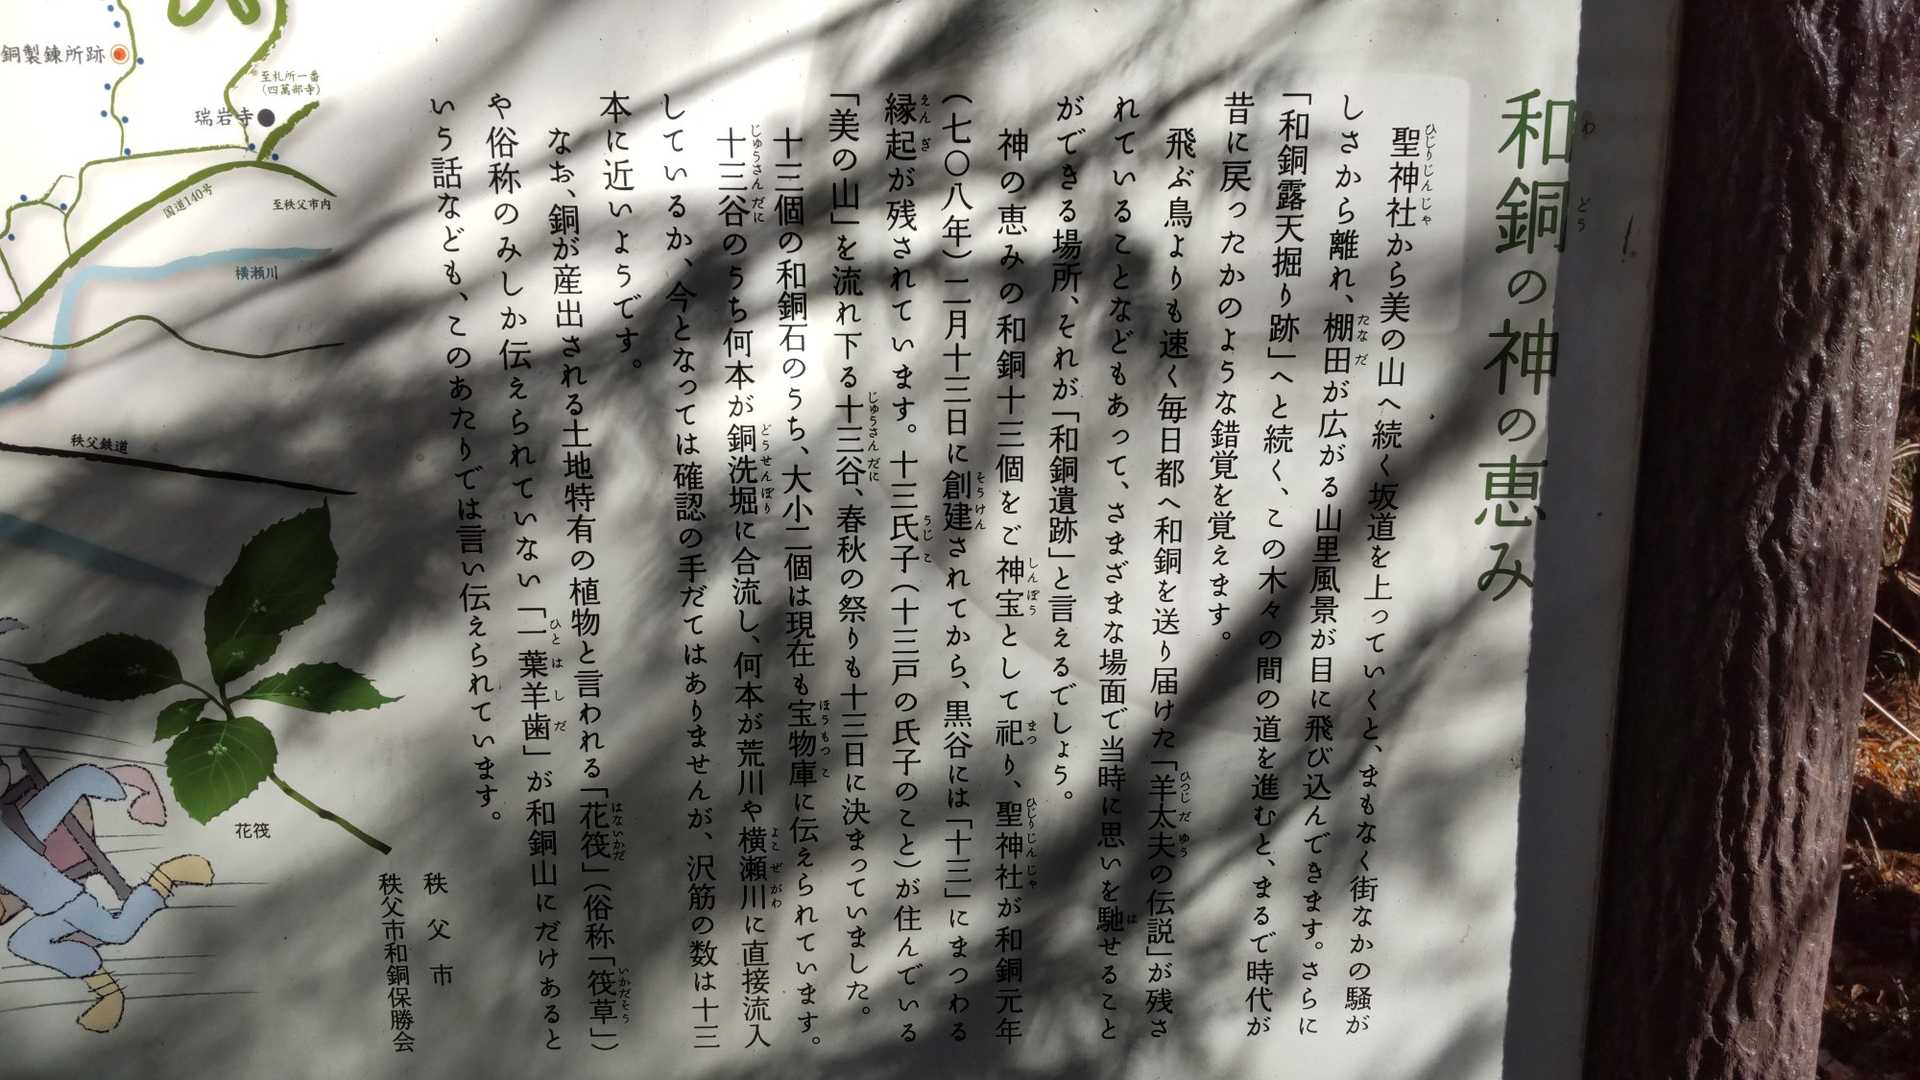 和銅の神の恵み
聖神社から美の山へ続く坂道を上っていくと、まもなく街なかの騒が
しさから離れ、棚田が広がる山里風景が目に飛び込んできます。さらに
「和銅露天掘り跡」へと続く、この木々の間の道を進むと、まるで時代が
昔に戻ったかのような錯覚を覚えます。
飛ぶ鳥よりも速く毎日都へ和銅を送り届けた「羊太夫の伝説」が残さ
れていることなどもあって、さまざまな場面で当時に思いを馳せること
ができる場所、それが「和銅遺跡」と言えるでしょう。
神の恵みの和銅十三個をご神宝として祀り、聖神社が和銅元年
(七〇八年)二月十三日に創建されてから、黒谷には「十三」にまつわる
縁起が残されています。十三氏子(十三戸の氏子のこと)が住んでいる
「美の山」を流れ下る十三谷、春秋の祭りも十三日に決まっていました。
十三個の和銅石のうち、大小二個は現在も宝物庫に伝えられています。
十三谷のうち何本が銅洗堀に合流し、何本が荒川や横瀬川に直接流入
しているか、今となっては確認の手だてはありませんが、沢筋の数は十三
本に近いようです。
なお、銅が産出される土地特有の植物と言われる「花筏」(俗称「筏草」)
や俗称のみしか伝えられていない「一葉羊歯」が和銅山にだけあると
いう話なども、このあたりでは言い伝えられています。
秩父市
秩父市和銅保勝会
銅製錬所跡
至札所一番
(四萬部寺)
瑞岩寺
国道140号
至秩父市内
横瀬川
秩父鉄道
花筏